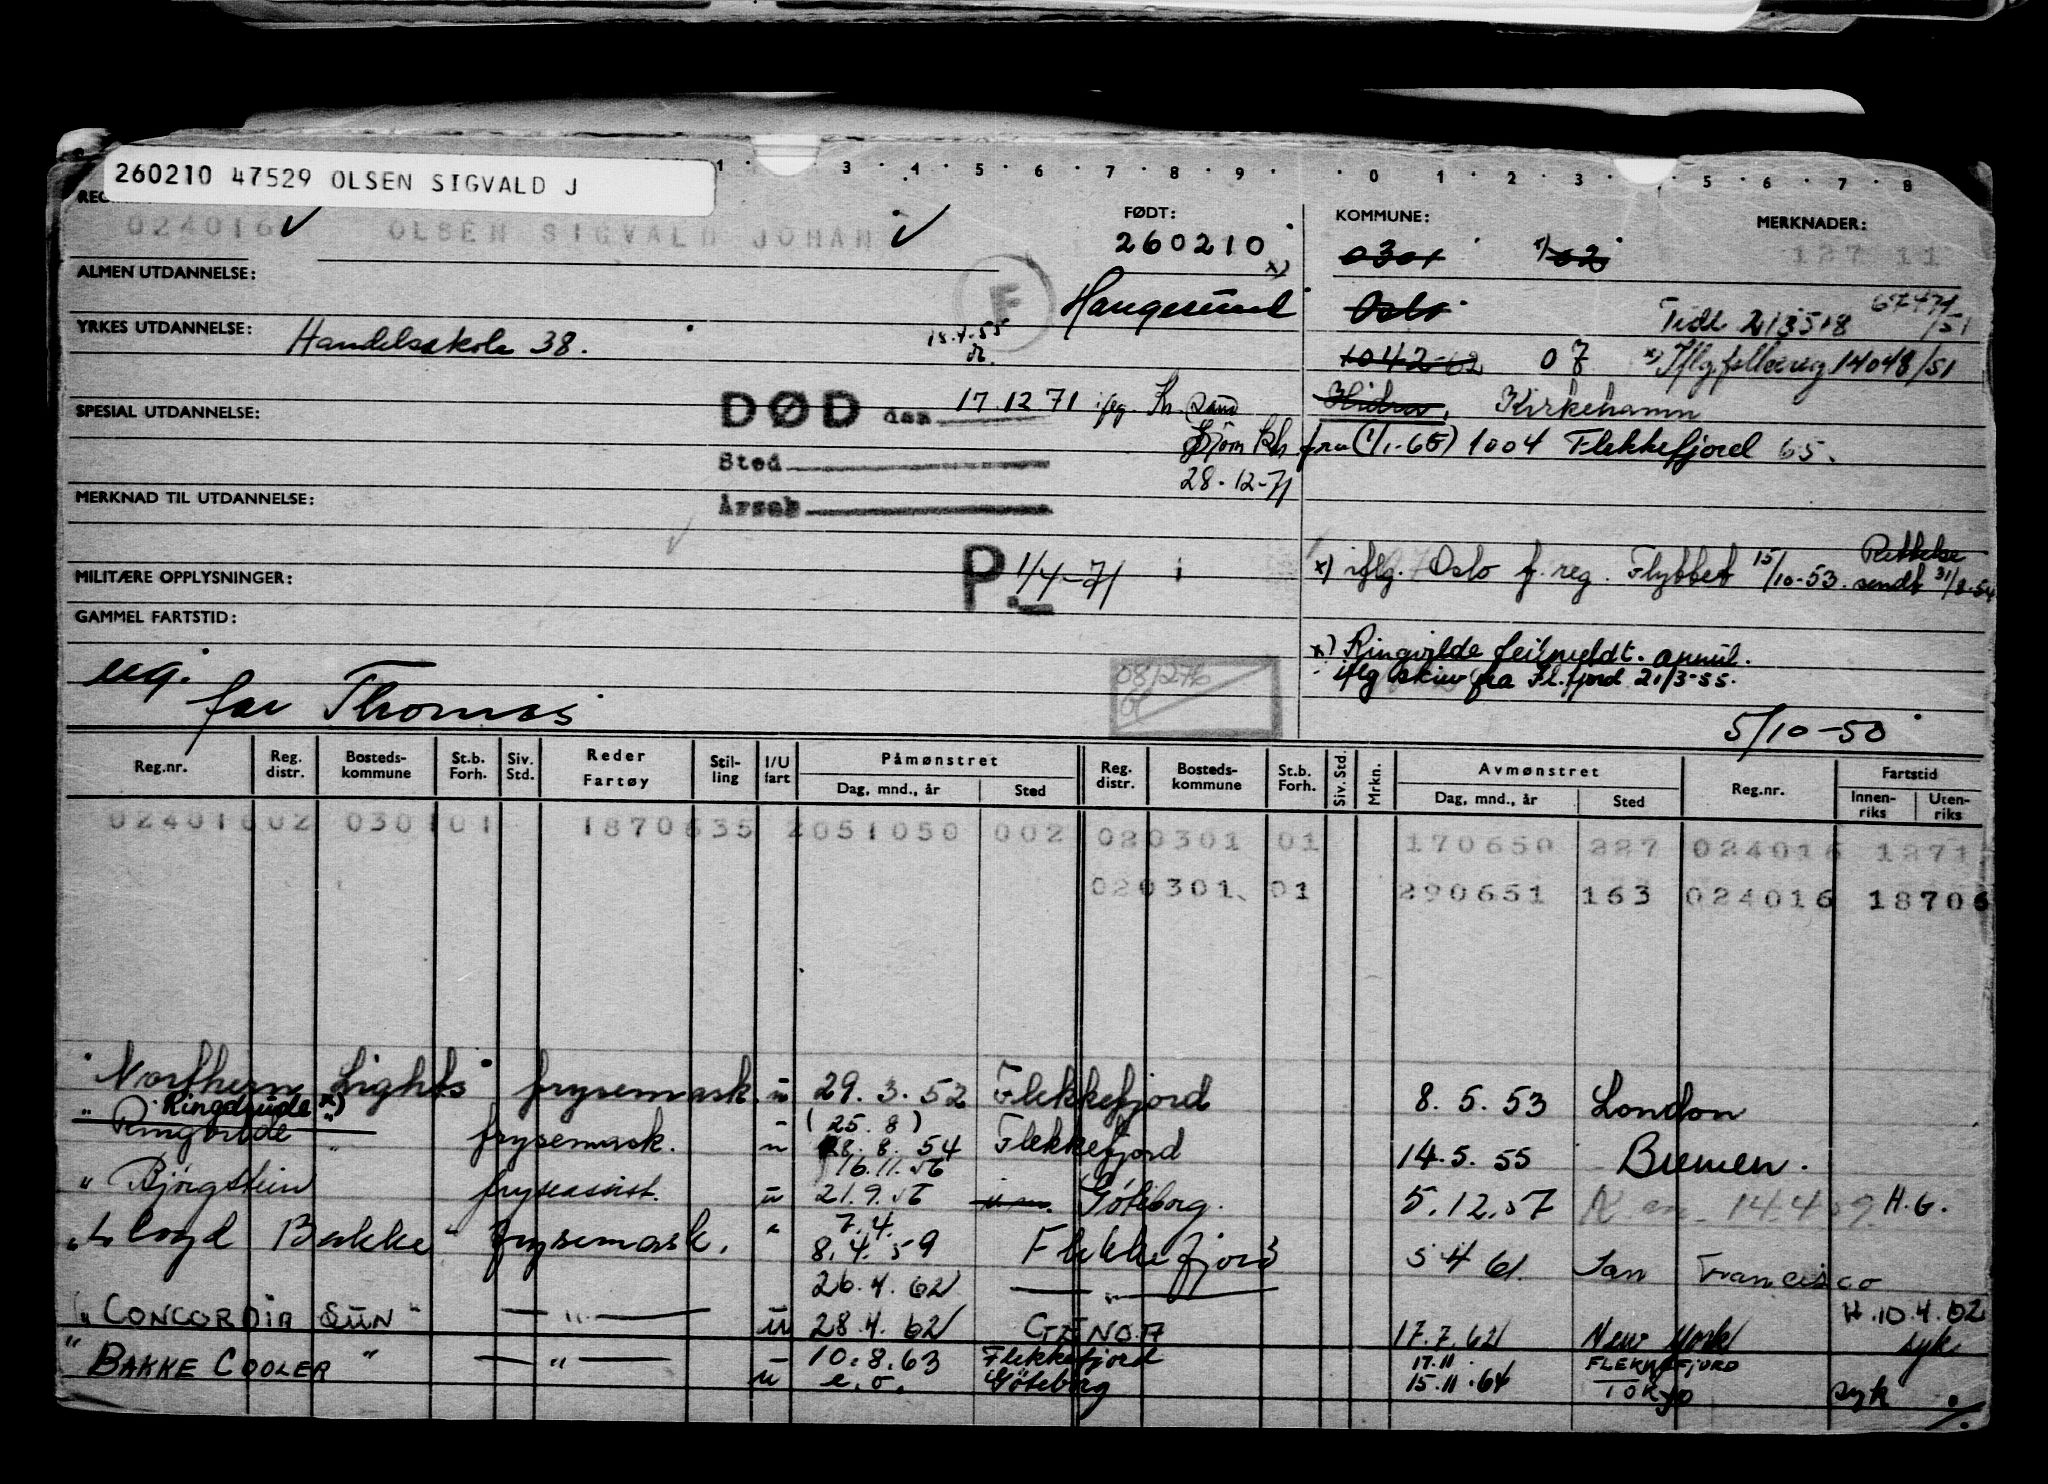 260210 47529 OLSEN SIGVALD J
1 3 4 5 6 7 8 9 0 1 2 3 5 6 7 8
FØDT: KOMMUNE: MERKNADER:
024016 OLSEN SIGVALD JOHAN 260210 x) 0301 02 127 11
ALMEN UTDANNELSE:
F Haugesund Oslo Tidl 213518 67471/51
YRKES UTDANNELSE: Handelsskole 38. 18.4.55 1042-62 07 x) Iflg. folkereg 14048/51
SPESIAL UTDANNELSE: DØD den 17 12 71 ifg. Kr. sand Hidra, Kirkehamn
Bjørn Kh. fra (1/1-65) 1004 Flekkefjord 65.
Sted 28-12-71
MERKNAD TIL UTDANNELSE: Årsak
MILITÆRE OPPLYSNINGER: P. 1/4-71 x) iflg. Oslo f. reg. Flyttet 15/10-53. Rettelse sendt 31/8-54
GAMMEL FARTSTID:
x) Ringvilde feilmeldt. annul.
iflg skriv fra Fl.fjord 21/3-55.
ug. far Thomas 08/276
5/10-50
Reg.nr. Reg. distr. Bosteds-kommune St.b. Forh. Siv. Std. Reder Fartøy Stil-ling I/U fart Påmønstret Dag, mnd., år Sted Reg. distr. Bosteds-kommune St.b. Forh. Siv. Std. Mrkn. Avmønstret Dag, mnd., år Sted Reg.nr. Fartstid Innen-riks Uten-riks
024016 02 0301 01 1870635 2051050 002 02 0301 01 170650 227 024016 1271
02 0301 01 290651 163 024016 18706
"Northern Lights" frysemask. u 29.3.52 Flekkefjord 8.5.53 London
Ringdrude x) (25.8)
"Ringvilde" frysemask. u 28.8.54 Flekkefjord 14.5.55 Bremen.
16.11.56
"Bjørgstein frysassist. u 21.9.56 Göteborg. 5.12.57 14.4.59. H.G.
7.4.
"Lloyd Bakke" frysemask. " 8.4.59 Flekkefjord 5 4 61. San Francisco
26.4.62 — " — H.10.4.62
"CONCORDIA SUN" — " — u 28.4.62 GENOA 17.7.62 New York syk
"BAKKE COOLER" — " — u 10.8.63 Flekkefjord 17.11. FLEKKEFJORD
e.o. Göteborg 15.11.64 TOKYO syk ./.